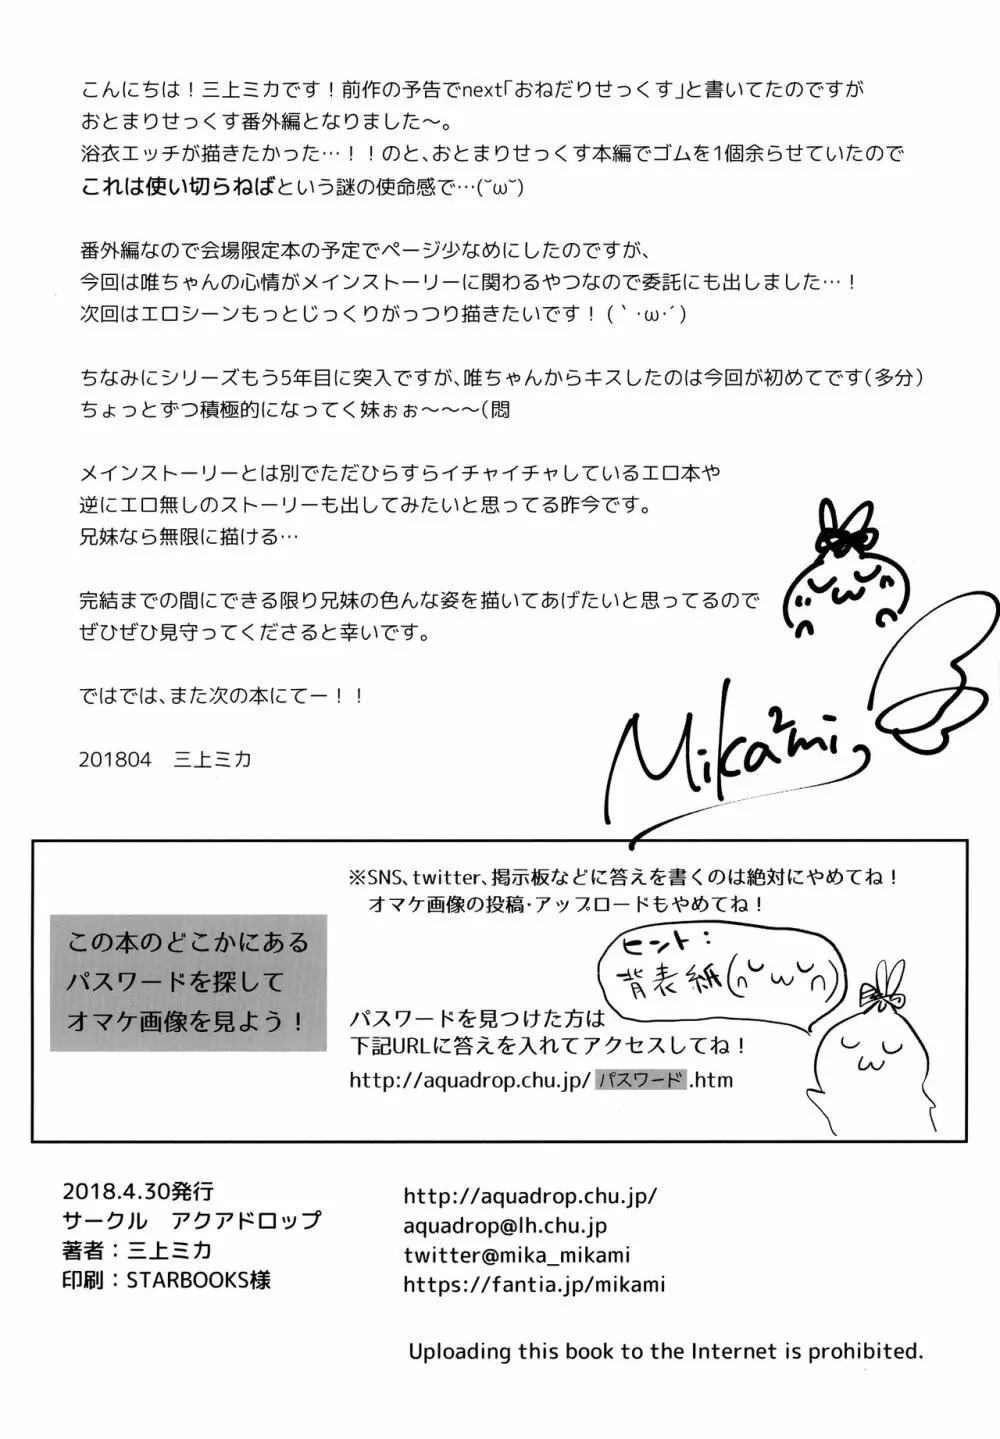 こんにちは！三上ミカです！前作の予告でnext「おねだりせっくす」と書いてたのですが
おとまりせっくす番外編となりました〜。
浴衣エッチが描きたかった…！！のと、おとまりせっくす本編でゴムを1個余らせていたので
これは使い切らねばという謎の使命感で…(˘ω˘)
番外編なので会場限定本の予定でページ少なめにしたのですが、
今回は唯ちゃんの心情がメインストーリーに関わるやつなので委託にも出しました…！
次回はエロシーンもっとじっくりがっつり描きたいです！(｀･ω･´)
ちなみにシリーズもう5年目に突入ですが、唯ちゃんからキスしたのは今回が初めてです(多分)
ちょっとずつ積極的になってく妹ぉぉ〜〜〜(悶
メインストーリーとは別でただひらすらイチャイチャしているエロ本や
逆にエロ無しのストーリーも出してみたいと思ってる昨今です。
兄妹なら無限に描ける…
完結までの間にできる限り兄妹の色んな姿を描いてあげたいと思ってるので
ぜひぜひ見守ってくださると幸いです。
ではでは、また次の本にてー！！
201804　三上ミカ
Mika²mi
※SNS、twitter、掲示板などに答えを書くのは絶対にやめてね！
オマケ画像の投稿・アップロードもやめてね！
この本のどこかにある
パスワードを探して
オマケ画像を見よう！
ヒント：
背表紙(∩˘ω˘∩)
パスワードを見つけた方は
下記URLに答えを入れてアクセスしてね！
http://aquadrop.chu.jp/パスワード.htm
2018.4.30発行
サークル　アクアドロップ
著者：三上ミカ
印刷：STARBOOKS様
http://aquadrop.chu.jp/
aquadrop@lh.chu.jp
twitter@mika_mikami
https://fantia.jp/mikami
Uploading this book to the Internet is prohibited.